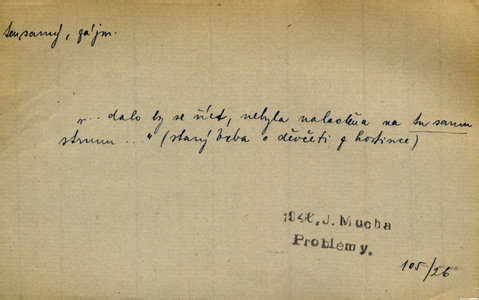 tensamý, zájm.
"... dalo by se říct, nebyla naladěna na tu samou
strunu ..." (starý Vrba o děvčeti z hostince)
1946, J. Mucha
Problémy.
105/26